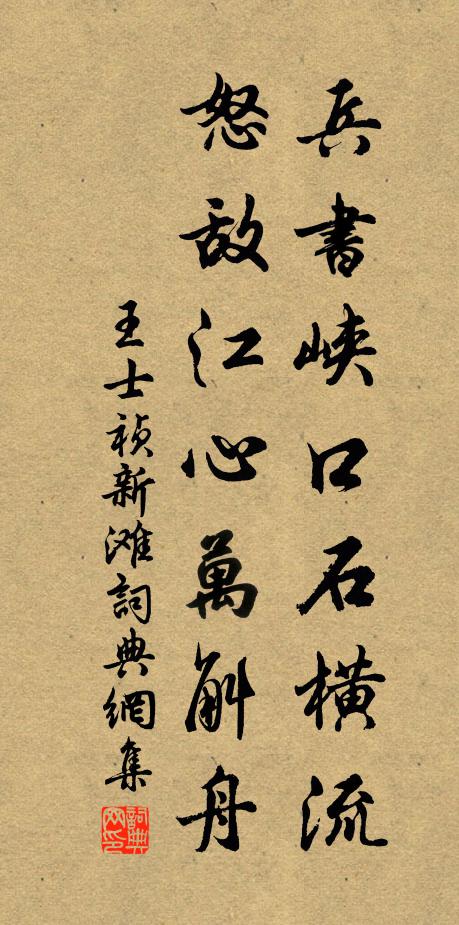 兵書峽口石橫流
怒敵江心萬斛舟
王士禎新灘詞典網集
詞典網印